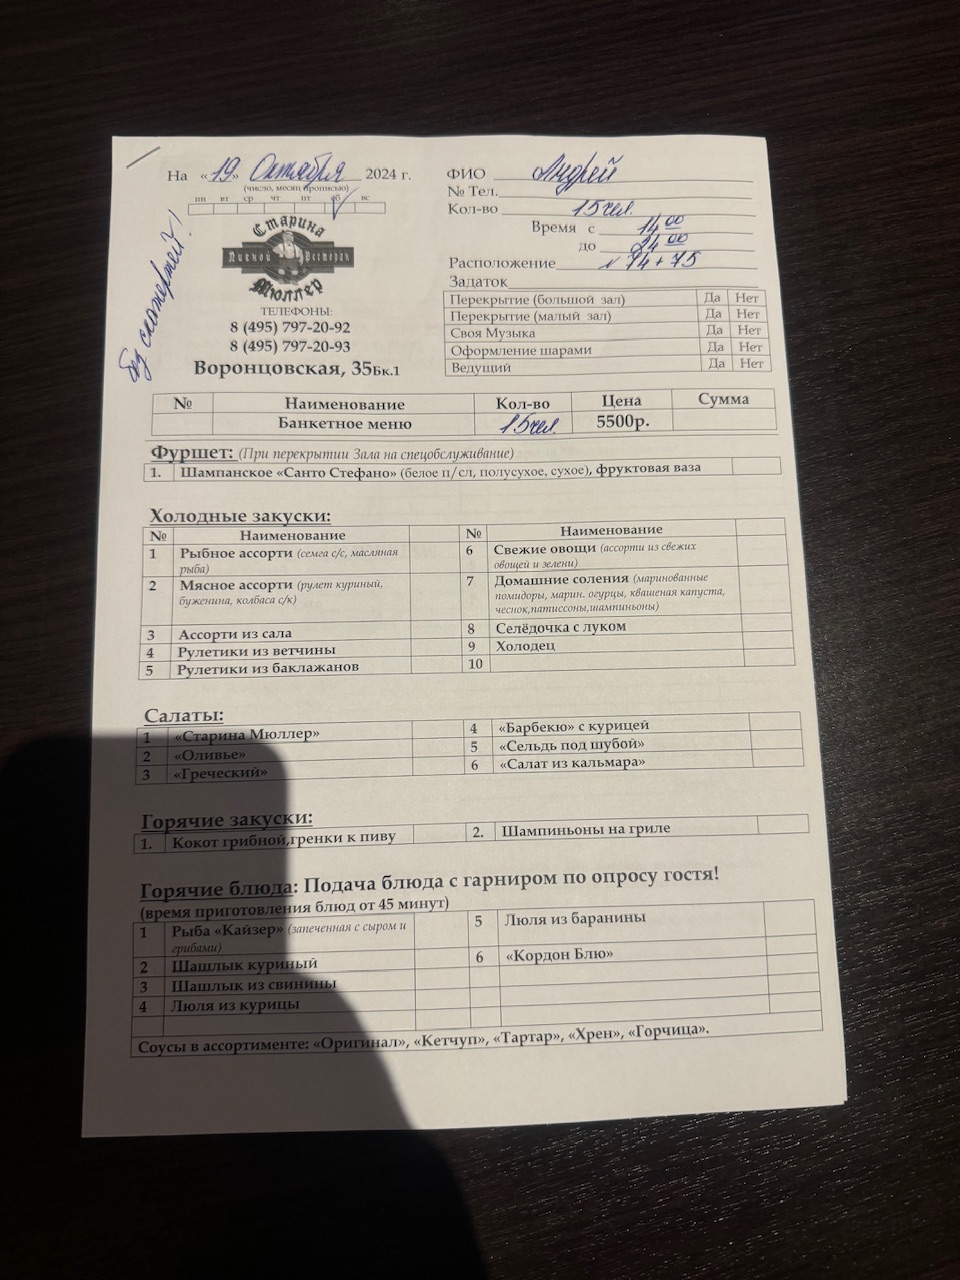 На «19» Октября 2024 г.
(число, месяц прописью)
пн вт ср чт пт сб вс
без скатертей!
Старина
Пивной Ресторан
Мюллер
ТЕЛЕФОНЫ:
8 (495) 797-20-92
8 (495) 797-20-93
Воронцовская, 35Бк.1
ФИО Андрей
№ Тел.
Кол-во 15 чел.
Время с 14 00
до 24 00
Расположение N 74 + 75
Задаток
Перекрытие (большой зал) Да Нет
Перекрытие (малый зал) Да Нет
Своя Музыка Да Нет
Оформление шарами Да Нет
Ведущий Да Нет
№ Наименование Кол-во Цена Сумма
Банкетное меню 15 чел. 5500р.
Фуршет: (При перекрытии Зала на спецобслуживание)
1. Шампанское «Санто Стефано» (белое п/сл, полусухое, сухое), фруктовая ваза
Холодные закуски:
№ Наименование № Наименование
1 Рыбное ассорти (семга с/с, масляная
рыба)
2 Мясное ассорти (рулет куриный,
буженина, колбаса с/к)
3 Ассорти из сала
4 Рулетики из ветчины
5 Рулетики из баклажанов
6 Свежие овощи (ассорти из свежих
овощей и зелени)
7 Домашние соления (маринованные
помидоры, марин. огурцы, квашеная капуста,
чеснок,патиссоны,шампиньоны)
8 Селёдочка с луком
9 Холодец
10
Салаты:
1 «Старина Мюллер»
2 «Оливье»
3 «Греческий»
4 «Барбекю» с курицей
5 «Сельдь под шубой»
6 «Салат из кальмара»
Горячие закуски:
1. Кокот грибной,гренки к пиву 2. Шампиньоны на гриле
Горячие блюда: Подача блюда с гарниром по опросу гостя!
(время приготовления блюд от 45 минут)
1 Рыба «Кайзер» (запеченная с сыром и
грибами)
2 Шашлык куриный
3 Шашлык из свинины
4 Люля из курицы
5 Люля из баранины
6 «Кордон Блю»
Соусы в ассортименте: «Оригинал», «Кетчуп», «Тартар», «Хрен», «Горчица».